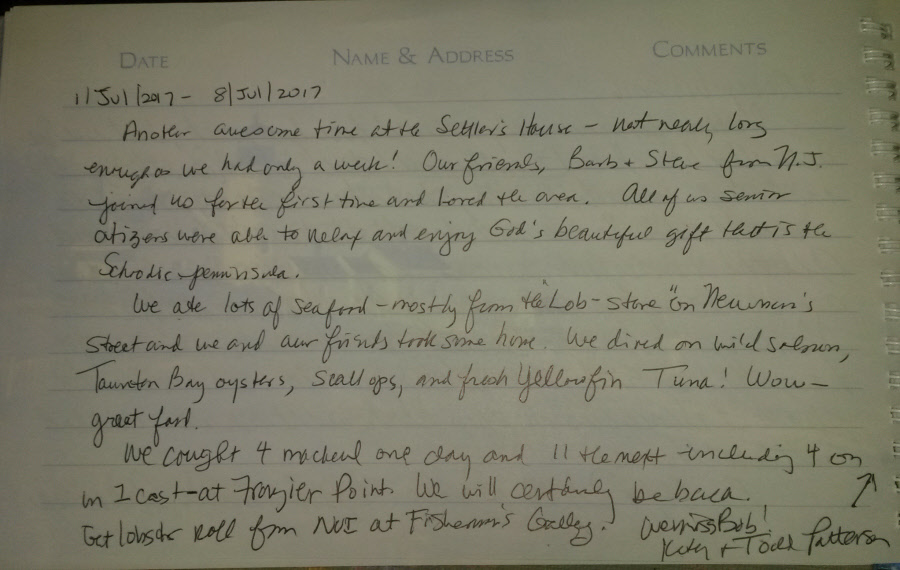 DATE NAME & ADDRESS COMMENTS
1/Jul/2017 - 8/Jul/2017
Another awesome time at the Settler's House - not nearly long
enough as we had only a week! Our friends, Barb + Steve from N.J.
joined us for the first time and loved the area. All of us senior
citizens were able to relax and enjoy God's beautiful gift that is the
Schodic penninsula.
We ate lots of seafood - mostly from the "Lob-Store" on Newman's
Street and we and our friends took some home. We dined on wild salmon,
Taunton Bay oysters, scallops, and fresh Yellowfin Tuna! Wow-
great food.
We caught 4 mackeral one day and 11 the next - including 4 on
in 1 cast - at Frazier Point. We will certainly be back.
Get lobster roll from at Fisherman's Galley. we miss Bob!
+ Todd Patterson